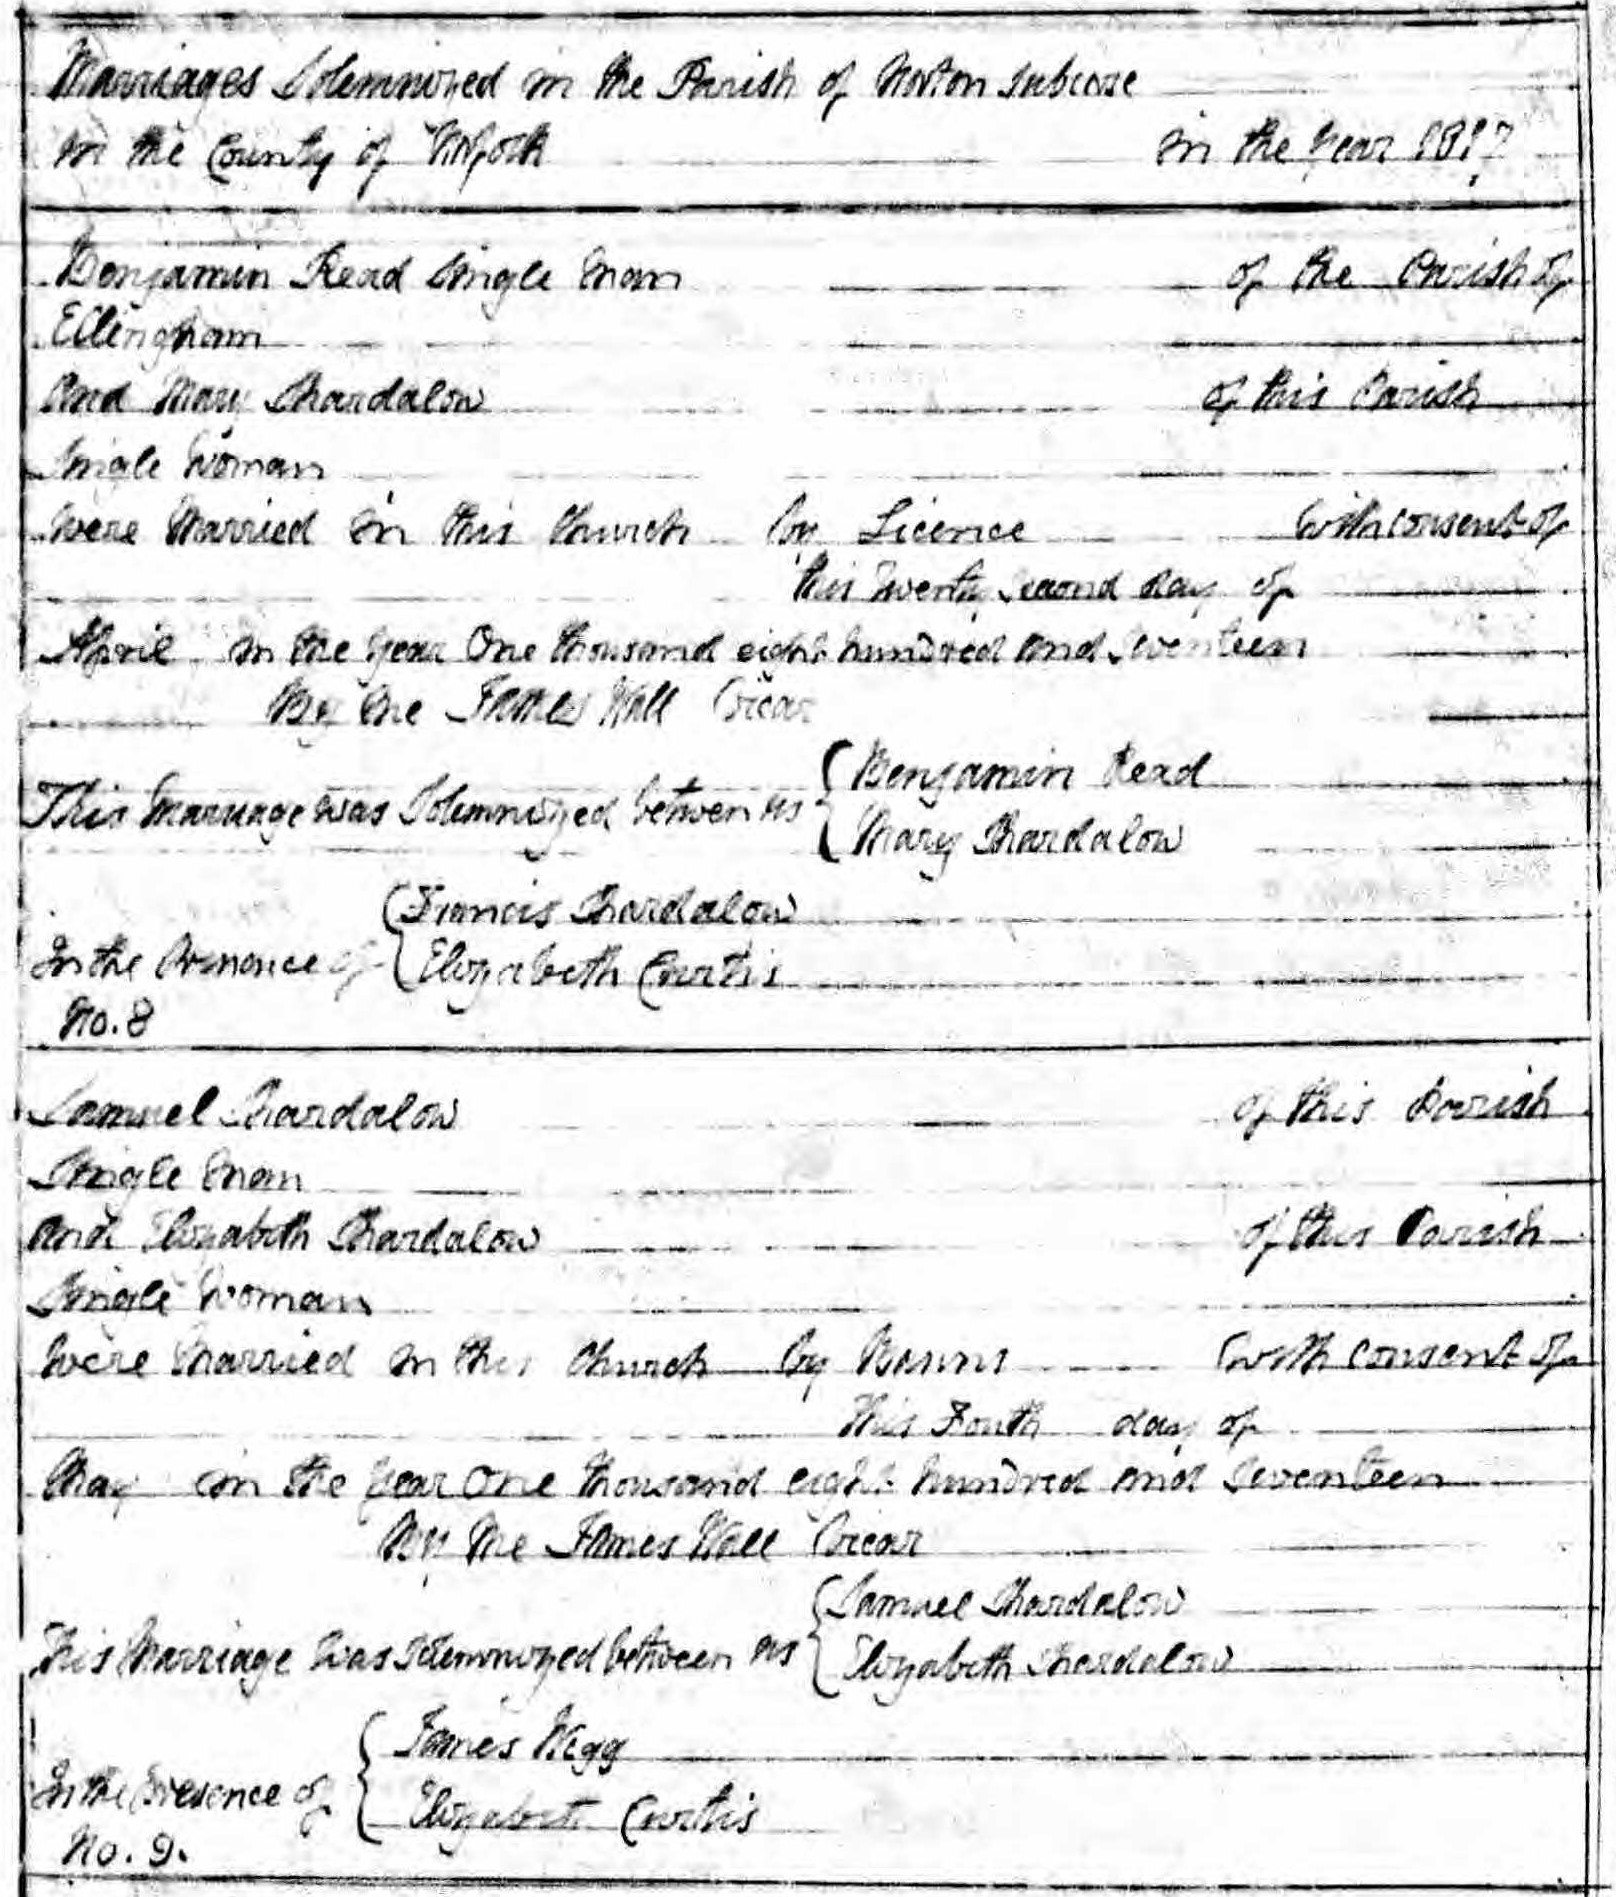 Marriages Solemnized in the Parish of Norton Subcorse
in the County of Norfolk in the Year 1817
Benjamin Read Single Man of the Parish of
Ellingham
And Mary Shardalow of this Parish
Single Woman
Were Married in this Church by Licence with consent of
this Twenty Second day of
April in the Year One thousand eight hundred and Seventeen
By Me James Wall Vicar
This Marriage was Solemnized between us Benjamin Read
Mary Shardalow
In the Presence of Francis Shardalow
Elizabeth Curtis
No. 8
Samuel Shardalow of this Parish
Single Man
And Elizabeth Shardalow of this Parish
Single Woman
Were Married in this Church by Banns with consent of
this Fouth day of
May in the year One thousand eight hundred and Seventeen
By Me James Wall Vicar
This Marriage was Solemnized between us Samuel Shardalow
Elizabeth Shardalow
In the Presence of James Wigg
Elizabeth Curtis
No. 9.